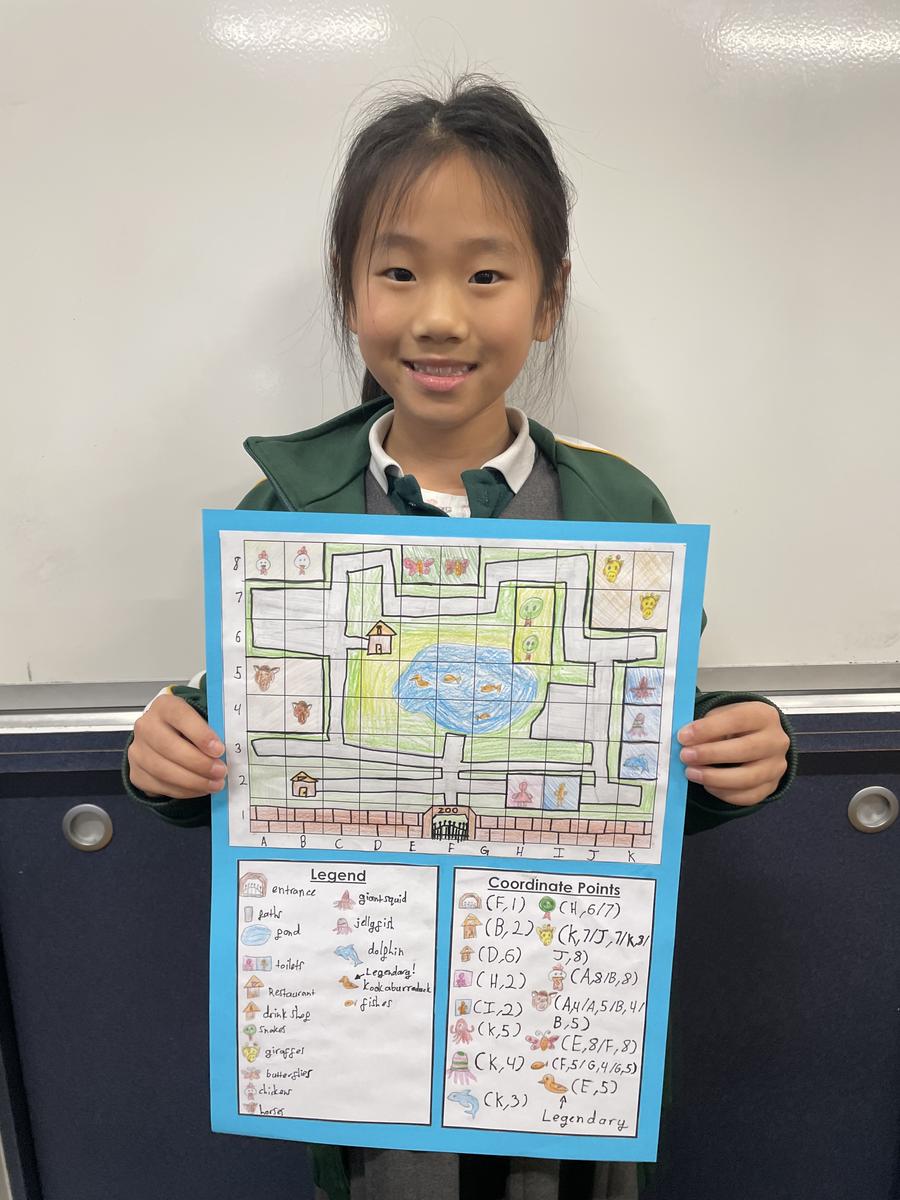 8
7
6
5
4
3
2
1
ZOO
A B C D E F G H I J K
Legend
entrance
paths
pond
toilets
Restaurant
drink shop
snakes
giraffes
butterflies
chickens
horses
giant squid
jellyfish
dolphin
Legendary!
kookaburraduck
fishes
Coordinate Points
(F,1)
(B,2)
(D,6)
(H,2)
(I,2)
(K,5)
(K,4)
(K,3)
(H,6/7)
(K,7/J,7/K,8/
J,8)
(A,8/B,8)
(A,4/A,5/B,4/
B,5)
(E,8/F,8)
(F,5/G,4/G,5)
(E,5)
Legendary